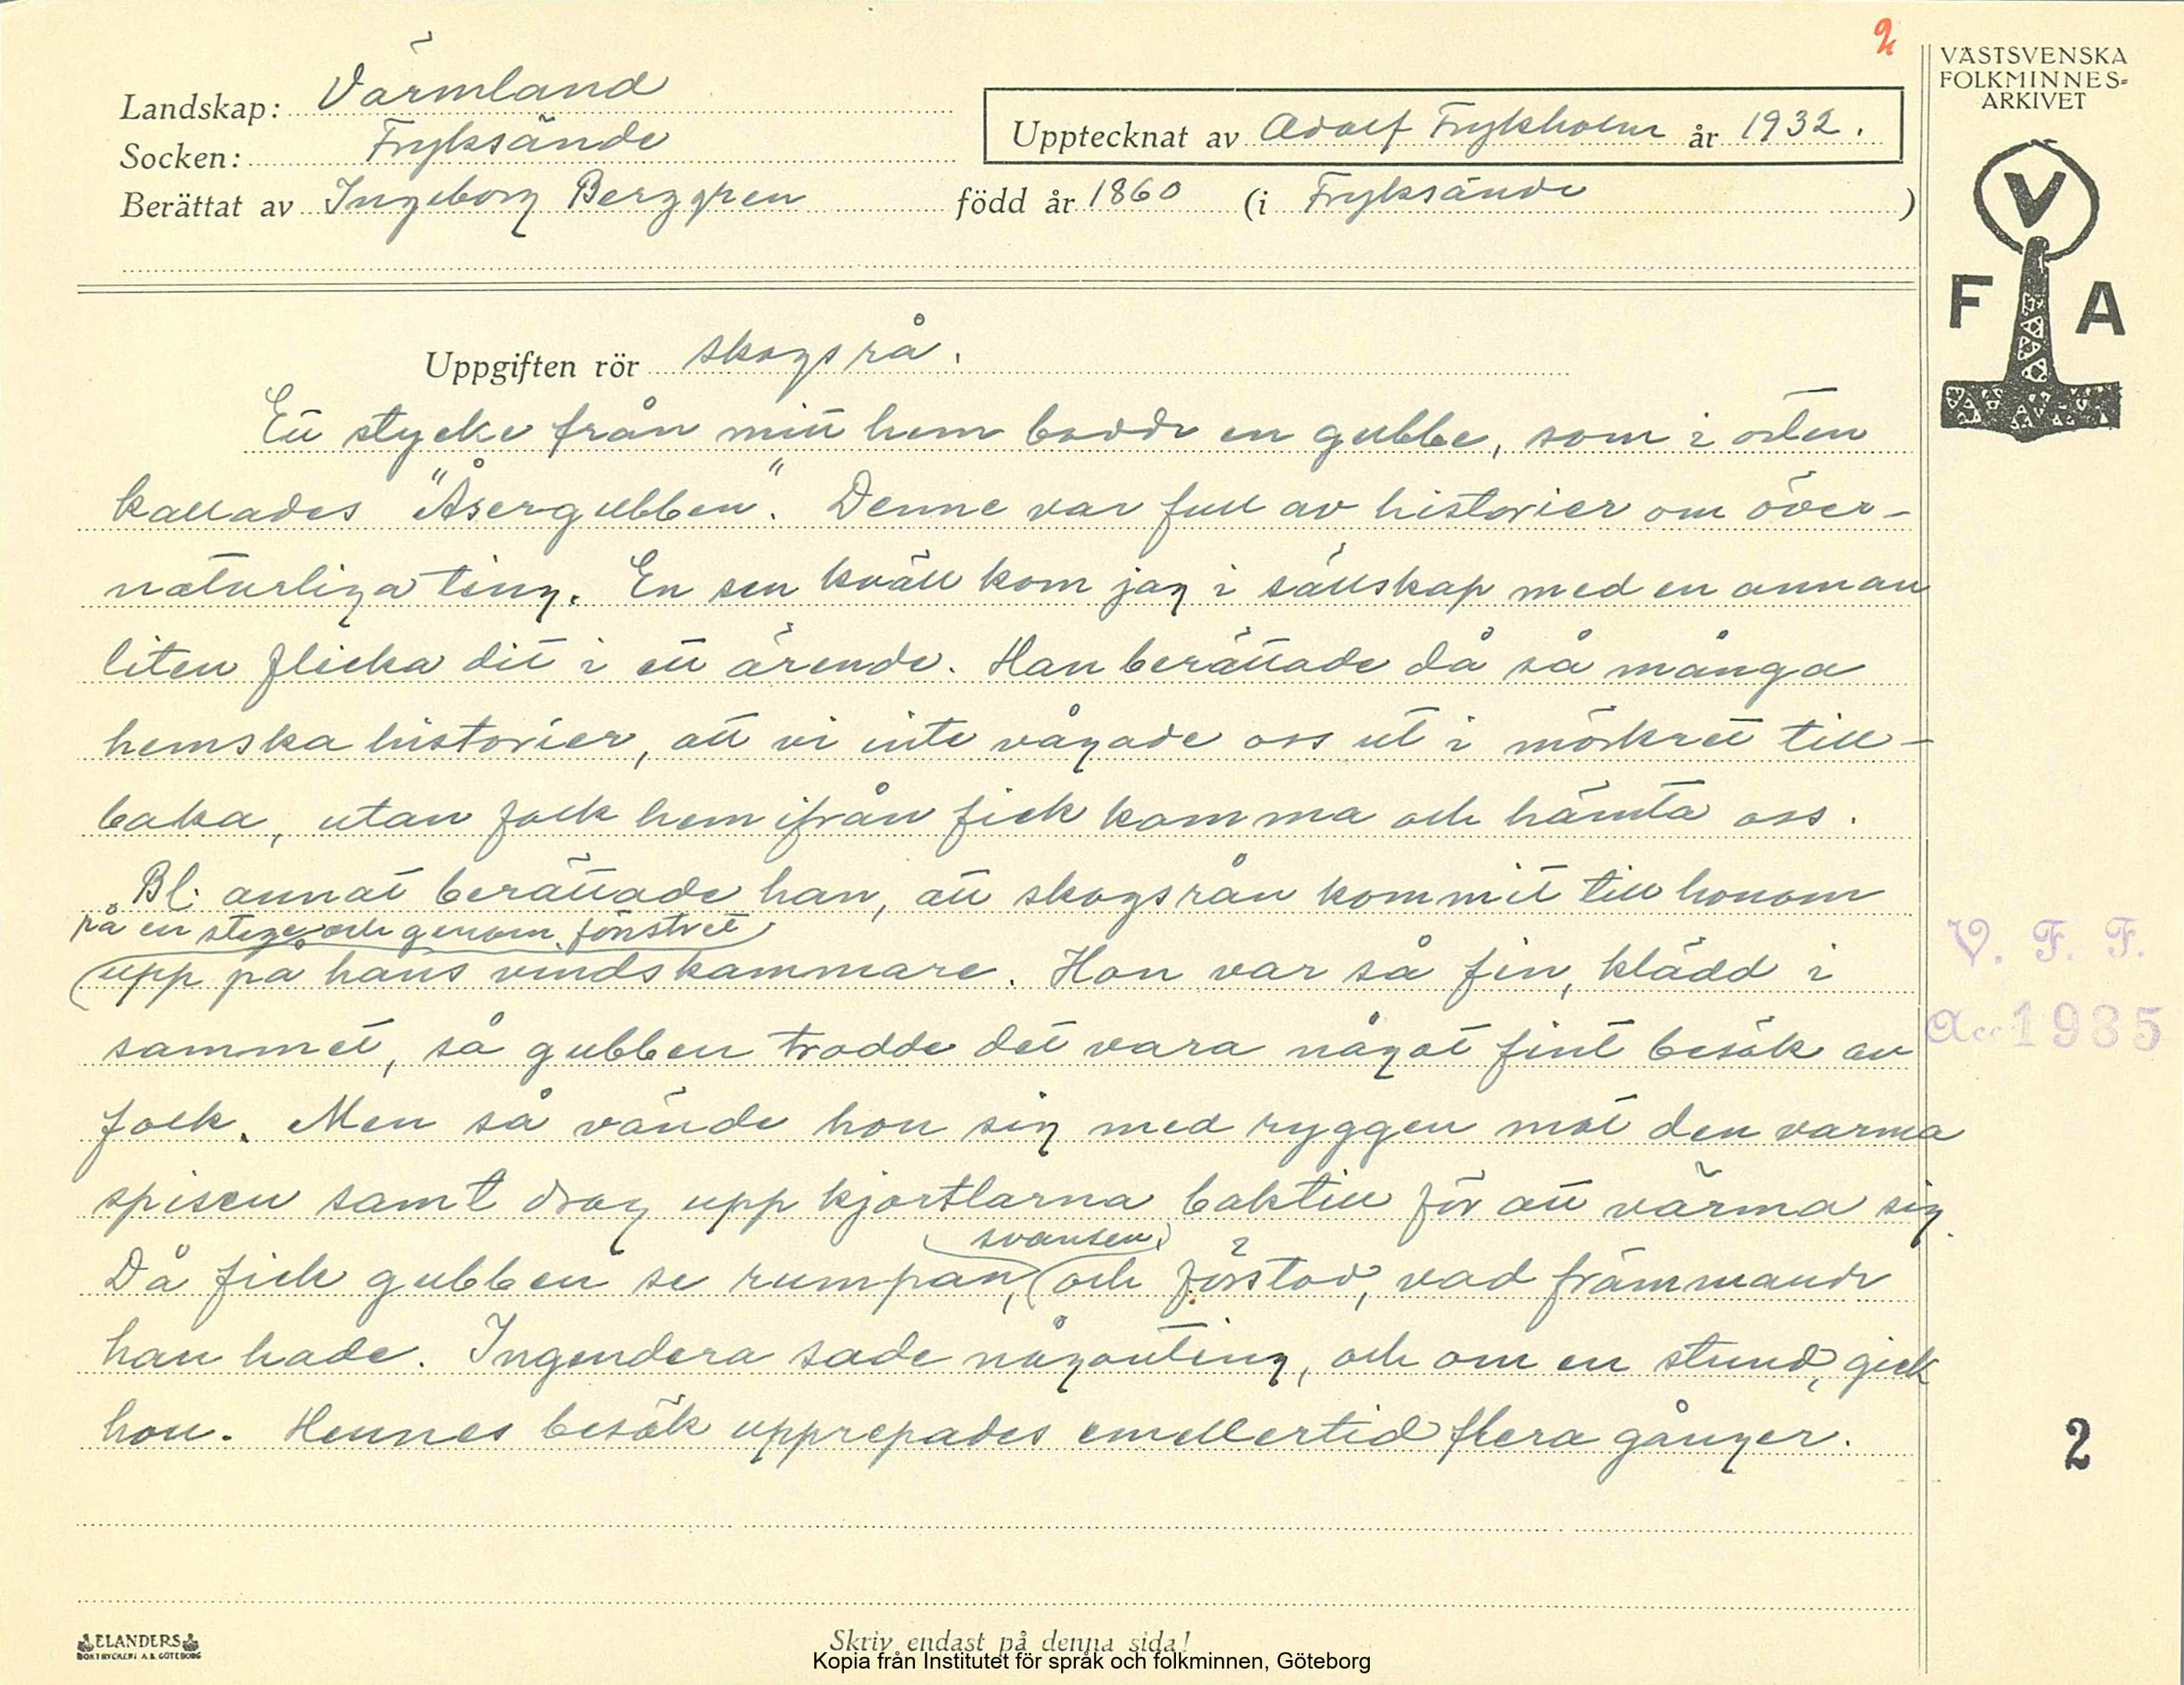 2
VÄSTSVENSKA
FOLKMINNES-
ARKIVET
Landskap: Värmland
Socken: Fryksände
Upptecknat av Adolf Frykholm år 1932.
Berättat av Ingeborg Berggren född år 1860 (i Fryksände )
V
F A
Uppgiften rör skogsrå.
Ett stycke från mitt hem bodde en gubbe, som i orten
kallades "Åsergubben". Denne var full av historier om över-
naturliga ting. En sen kväll kom jag i sällskap med en annan
liten flicka dit i ett ärende. Han berättade då så många
hemska historier, att vi inte vågade oss ut i mörkret till-
baka, utan folk hemifrån fick komma och hämta oss.
Bl. annat berättade han, att skogsrån kommit till honom
på en stege och genom fönstret
upp på hans vindskammare. Hon var så fin, klädd i
sammet, så gubben trodde det vara något fint besök av
folk. Men så vände hon sig med ryggen mot den varma
spisen samt drog upp kjortlarna baktill för att värma sig.
svansen
Då fick gubben se rumpan, (och förstod, vad främmande
han hade. Ingendera sade någonting, och om en stund, gick
hon. Hennes besök upprepades emellertid flera gånger.
V. F. F.
Acc 1935
2
ELANDERS
BOKTRYCKERI A.B. GÖTEBORG
Skriv endast på denna sida!
Kopia från Institutet för språk och folkminnen, Göteborg